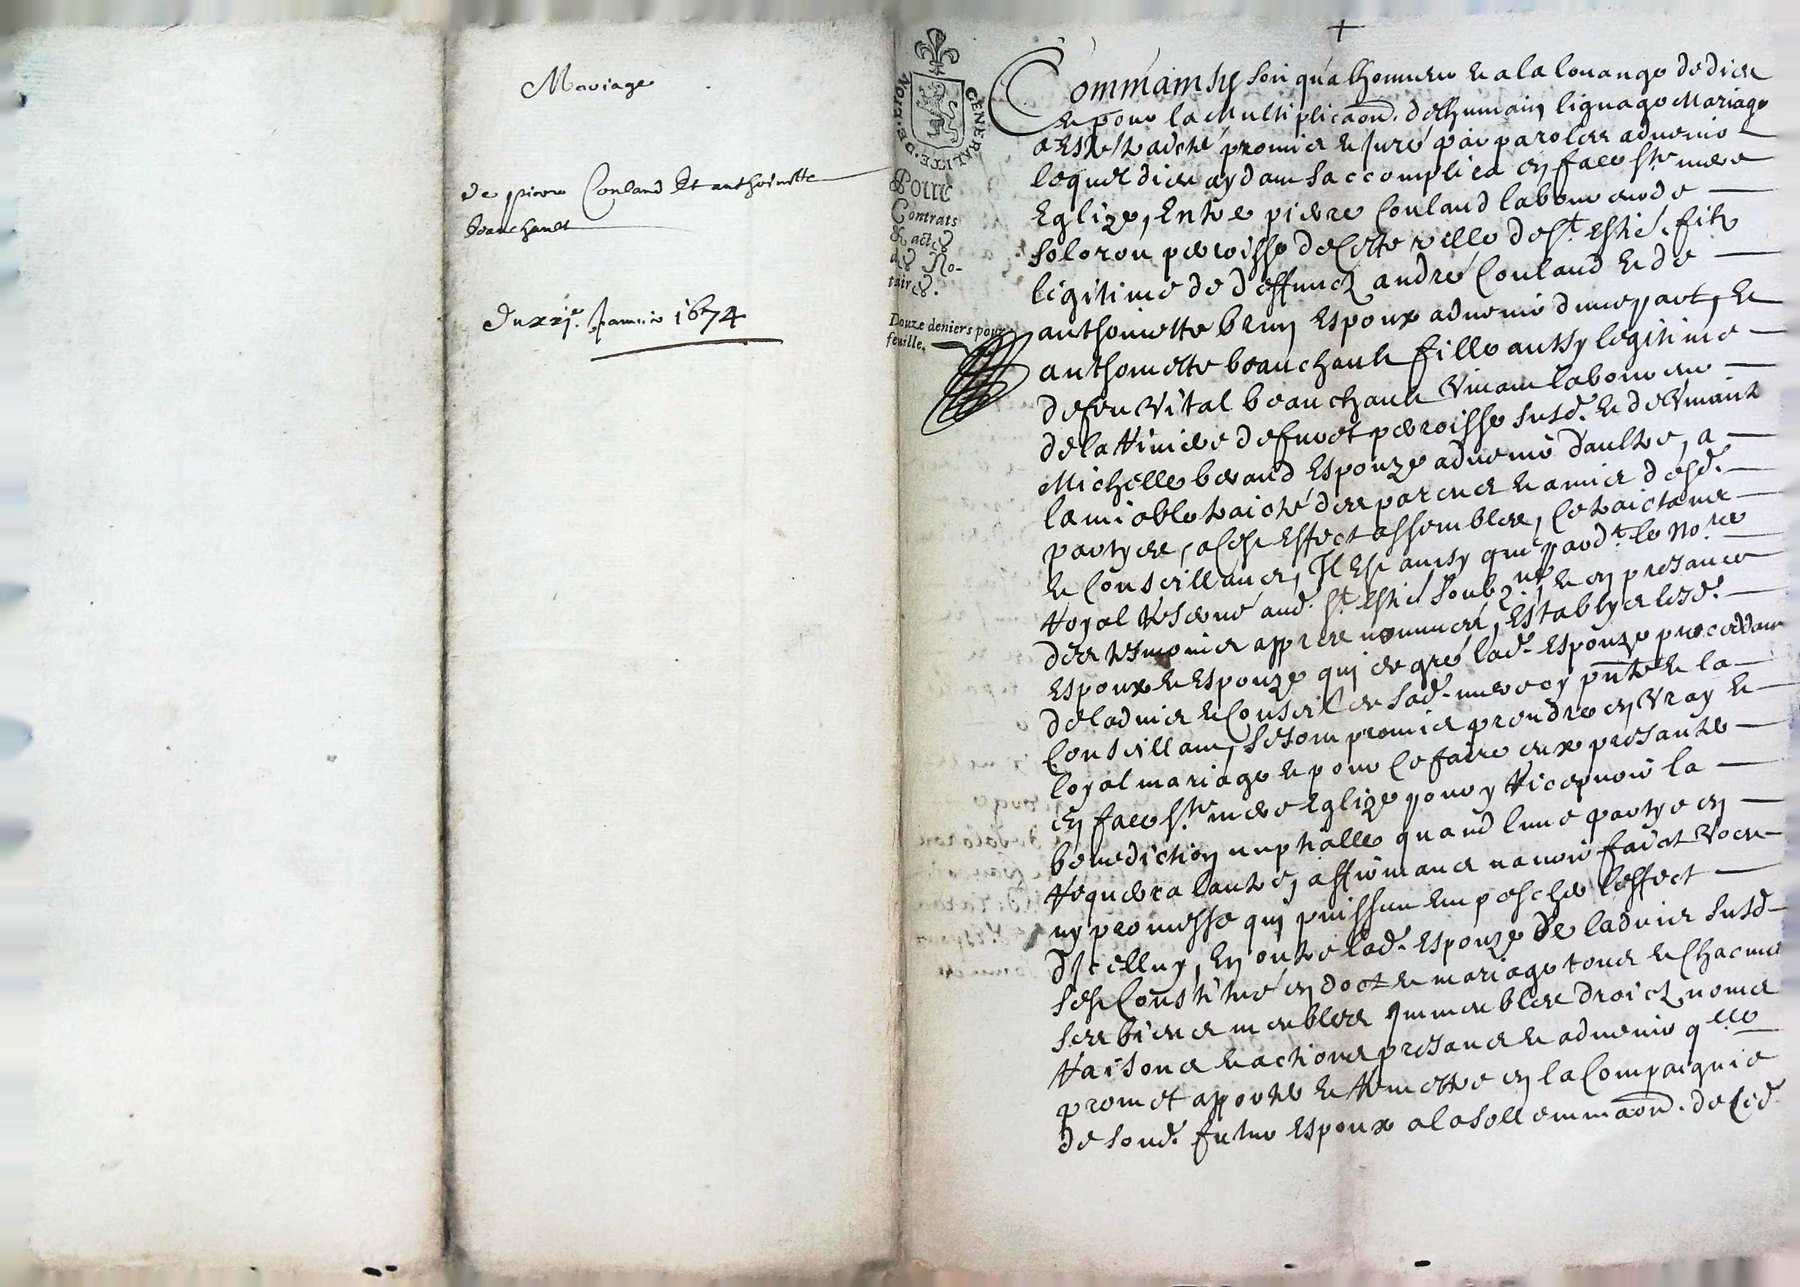 Mariage
de pierre Couland Et anthoinette
beauchanet
Du xxj.e Januier 1674
GENERALITE. DE. LION
Pour
Contrats
& actes
des No-
taires.
Douze deniers pour
feuille.
Comm'ainsy soit qu'a lhonneur & a la louange de dieu
& pour la Multiplicaon. de lhumain lignage Mariage
a este traicté promis & juré par parolles aduenir
lequel dieu aydant saccomplira en face ste. mere
Eglize, Entre pierre Couland laboureur de
Soleron parroisse de Cette ville de St. Estie. filz
legitime de deffunct andré Couland & de
anthoinette brun Espoux aduenir d'une part, &
anthoinette beauchanet fille aussy legitime
de feu Vital beauchanet Viuant laboureur
de la Riuiere de furet parroisse susd. & de Viuante
Michelle beraud Espouze aduenir d'aultre, a
lamiable traicté des parens & amis desd.
partyes, a Cest Effect assembles, Ce traictant
& Conseillants, Il Est ainsy que pardt. le nore.
Royal reserué aud. St. Estie soubzne. & en presance
des tesmoins appres nommés, Establys lesd.
Espoux & Espouze qui de gré lad. Espouze proceddant
de ladvis & Conseil de sad. mere cy pnte & la
Conseillant, se sont promis prendre en vray &
loyal mariage & pour Ce faire eux presanter
en face ste. mere Eglize pour y Recepuoir la
benediction nuptialle quand lune partye en
Requerra lautre, affirmants nauoir faict Voeu
ny promesse qui puissent Empescher leffect
d'Icelluy, En oultre lad. Espouze de ladvis susd.
sest Constitué en doct & mariage tous & Chacuns
ses biens meubles Immeubles droictz noms
Raisons & actions presans & aduenir qlle
promet apporter & Remettre en la Compaignie
de sond. futur Espoux a la sollemnaon. de Ced.